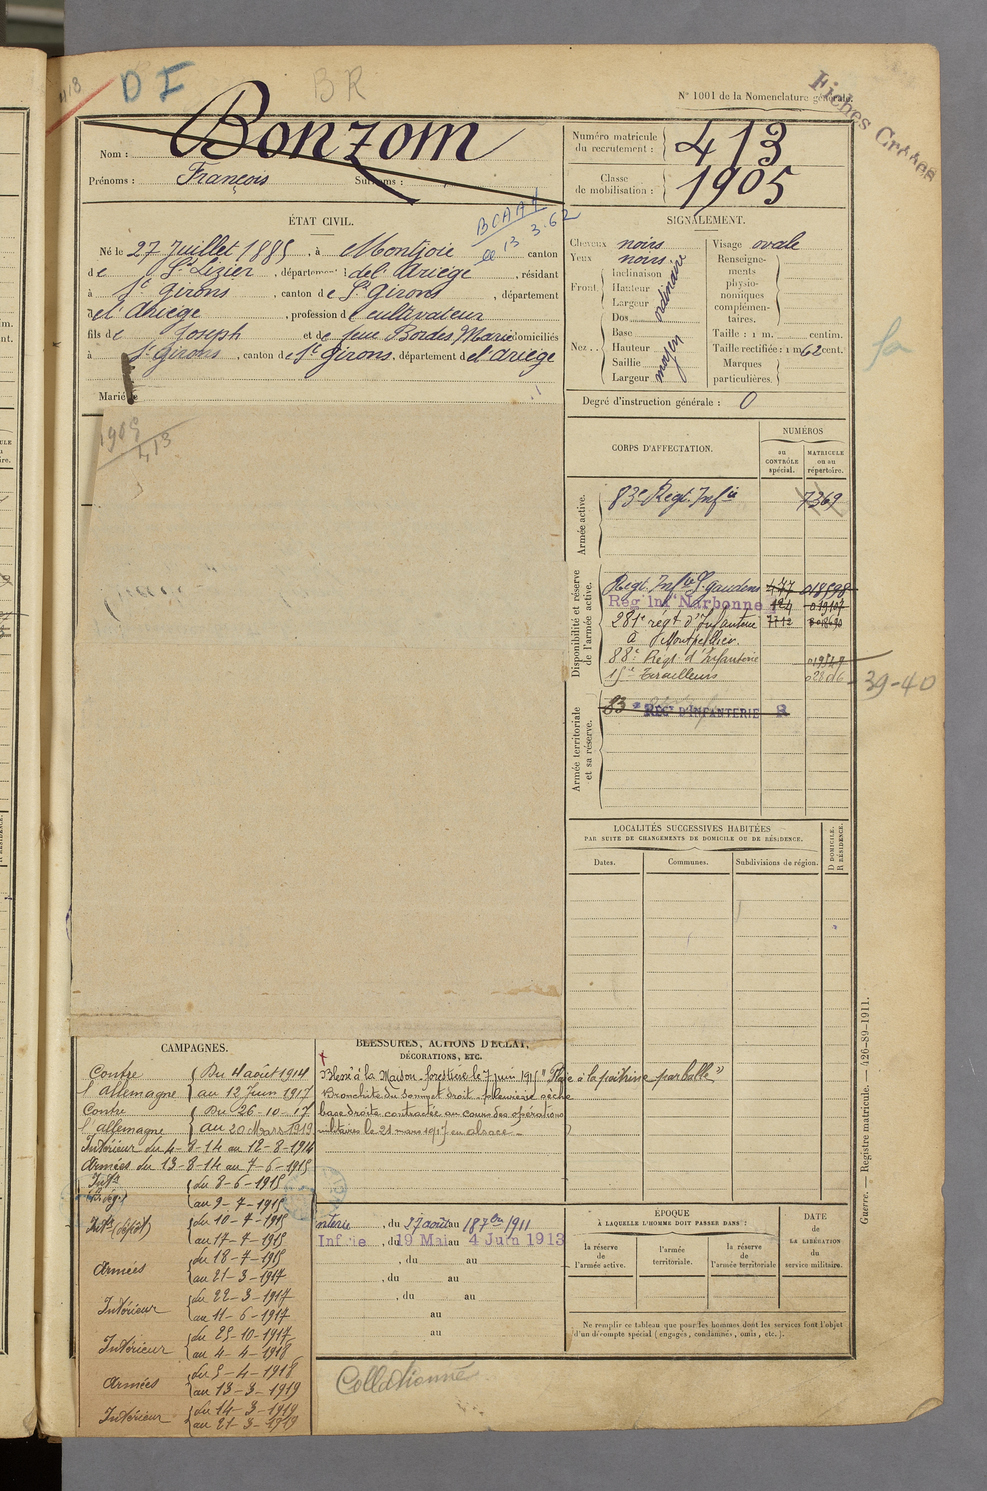 418
D I
BR
N° 1001 de la Nomenclature générale.
Fiches Croées
Nom : Bonzom
Prénoms : François Surnoms :
Numéro matricule du recrutement : 413
Classe de mobilisation : 1905
ÉTAT CIVIL.
BCAAM
le 13 3.62
Né le 27 Juillet 1885, à Montjoie canton
de St Lizier, département de l'Ariège, résidant
à St Girons, canton de St Girons, département
de l'Ariège, profession de cultivateur
fils de Joseph et de feue Bordes Marie domiciliés
à St Girons, canton de St Girons, département de l'Ariège
Marié
SIGNALEMENT.
Cheveux noirs
Yeux noirs
Front. Inclinaison Hauteur Largeur ordinaire
Nez.. Dos Base Hauteur Saillie Largeur moyen
Visage ovale
Renseignements physionomiques complémentaires.
Taille : 1 m. centim.
Taille rectifiée : 1 m 62 cent.
Marques particulières.
Degré d'instruction générale : 0
1905
413
CORPS D'AFFECTATION.
NUMÉROS
au CONTRÔLE spécial.
MATRICULE ou au répertoire.
Armée active.
83e Regt. Infie 7369
Disponibilité et réserve de l'armée active.
Regt. Infie St gaudens 477 018598
Rég Inf Narbonne 124 019107
281e régt d'Infanterie
à Montpellier.
88e Régt d'Infanterie 01954
15e Tirailleurs
39-40
Armée territoriale et sa réserve.
83e REG D'INFANTERIE
LOCALITÉS SUCCESSIVES HABITÉES
PAR SUITE DE CHANGEMENTS DE DOMICILE OU DE RÉSIDENCE.
Dates. Communes. Subdivisions de région. D DOMICILE. R RÉSIDENCE.
CAMPAGNES.
Contre l'allemagne { Du 4 août 1914 au 12 Juin 1917
Contre l'allemagne { Du 26-10-17 au 20 Mars 1919
Intérieur du 4-8-14 au 12-8-1914
Armées du 13-8-14 au 7-6-1915
Intr { du 8-6-1915 au 9-7-1915
Intr (dépôt) { du 10-7-1915 au 17-7-1915
Armées { du 18-7-1915 au 21-3-1917
Intérieur { du 22-3-1917 au 11-6-1917
Intérieur { du 25-10-1917 au 4-4-1918
Armées { du 5-4-1918 au 13-3-1919
Intérieur { du 14-3-1919 au 21-3-1919
BLESSURES, ACTIONS D'ÉCLAT, DÉCORATIONS, ETC.
Blessé à la Maison forestière le 7 juin 1915 "Plaie à la poitrine par balle"
Bronchite du sommet droit. pleurésie sèche
base droite contractée au cours des opérations
militaires le 21 mars 1917 en alsace.
, du 27 août au 18 7bre 1911
Inf ie, du 19 Mai au 4 Juin 1913
, du au
, du au
, du au
au
au
ÉPOQUE
À LAQUELLE L'HOMME DOIT PASSER DANS :
la réserve de l'armée active.
l'armée territoriale.
la réserve de l'armée territoriale
DATE de LA LIBÉRATION du service militaire.
Ne remplir ce tableau que pour les hommes dont les services font l'objet
d'un décompte spécial (engagés, condamnés, omis, etc.).
Collationné
Guerre. — Registre matricule. — 426-89-1911.